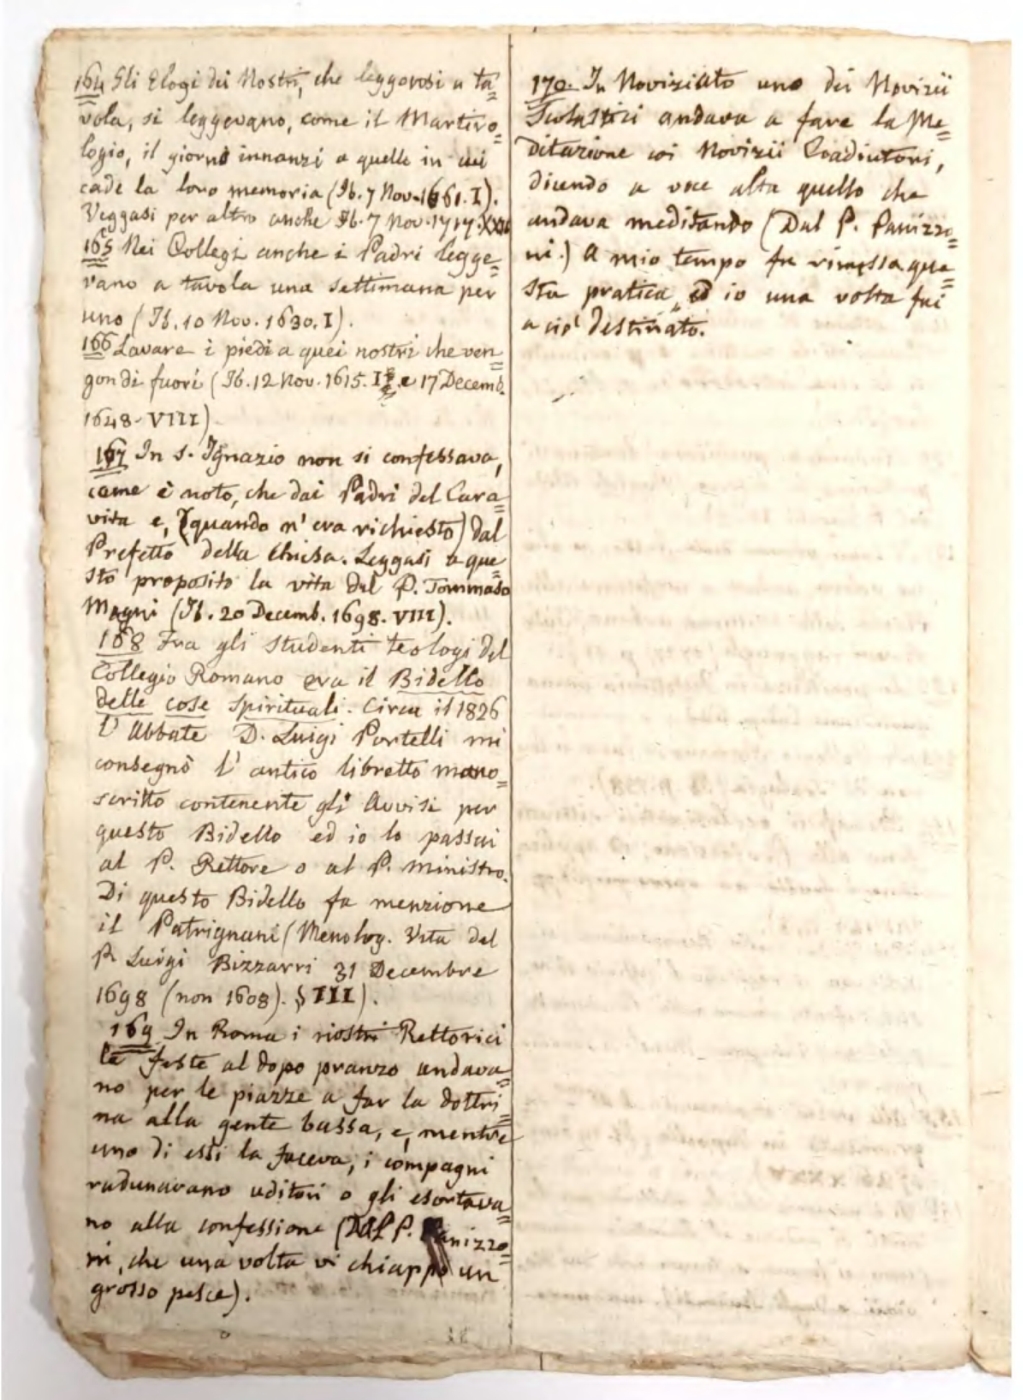 164 Gli Elogi dei Nostri, che leggovosi a ta=
vola, si leggevano, come il Martiro=
logio, il giorno innanzi a quelle in cui
cade la loro memoria (Ib. 7 Nov. 1661. I).
Veggasi per altro anche Ib. 7 Nov. 1717. XXII
165 Nei Collegj anche i Padri legge=
vano a tavola una settimana per
uno (Ib. 10 Nov. 1630. I).
166 Lavare i piedi a quei nostri che ven=
gon di fuori (Ib. 12 Nov. 1615. e 17 Decemb.
1648. VIII)
167 In S. Ignazio non si confessava,
come è noto, che dai Padri del Cara=
vita e, (quando n' era richiesto) dal
Prefetto della Chiesa. Leggasi a que=
sto proposito la vita del P. Tommaso
Magni (Ib. 20 Decemb. 1698. VIII).
168 Fra gli studenti teologi del
Collegio Romano era il Bidello
delle cose spirituali. Circa il 1826
l' Abbate D. Luigi Portelli mi
consegnò l' antico libretto mano=
scritto contenente gli Avvisi per
questo Bidello ed io lo passai
al P. Rettore o al P. Ministro.
Di questo Bidello fa menzione
il Patrignani (Menolog. Vita del
P. Luigi Bizzarri 31 Decembre
1698 (non 1608). § III).
169 In Roma i nostri Rettorici
le feste al dopo pranzo andava=
no per le piazze a far la dottri=
na alla gente bassa, e, mentre
uno di essi la faceva, i compagni
radunavano uditori o gli esortava=
no alla confessione (Dal P. Panizzo=
ni, che una volta vi chiappò un
grosso pesce).
170. In Noviziato uno dei Novizii
Scolastici andava a fare la Me=
ditazione coi Novizii Coadiutori,
dicendo a voce alta quello che
andava meditando (Dal P. Panizzo=
ni.) A mio tempo fu rimessa que=
sta pratica, ed io una volta fui
a ciò destinato.